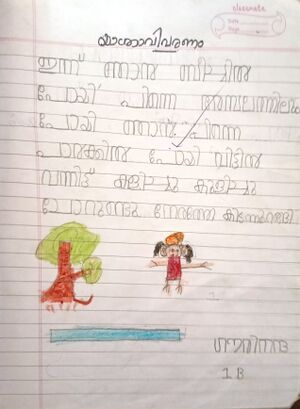 classmate
Date
Page
യാത്രാവിവരണം
ഇന്ന് ഞാൻ ബീച്ചിൽ
പോയി പിന്നെ അമ്പലത്തിലും
പോയി ഞാൻ പിന്നെ
പാർക്കിൽ പോയി വീട്ടിൽ
വന്നിട് കളിച്ചു കുളിച്ചു
ചോറുണ്ടു നേരത്തേ കിടന്നുറങ്ങി
ഗൗരിനന്ദ
1 B